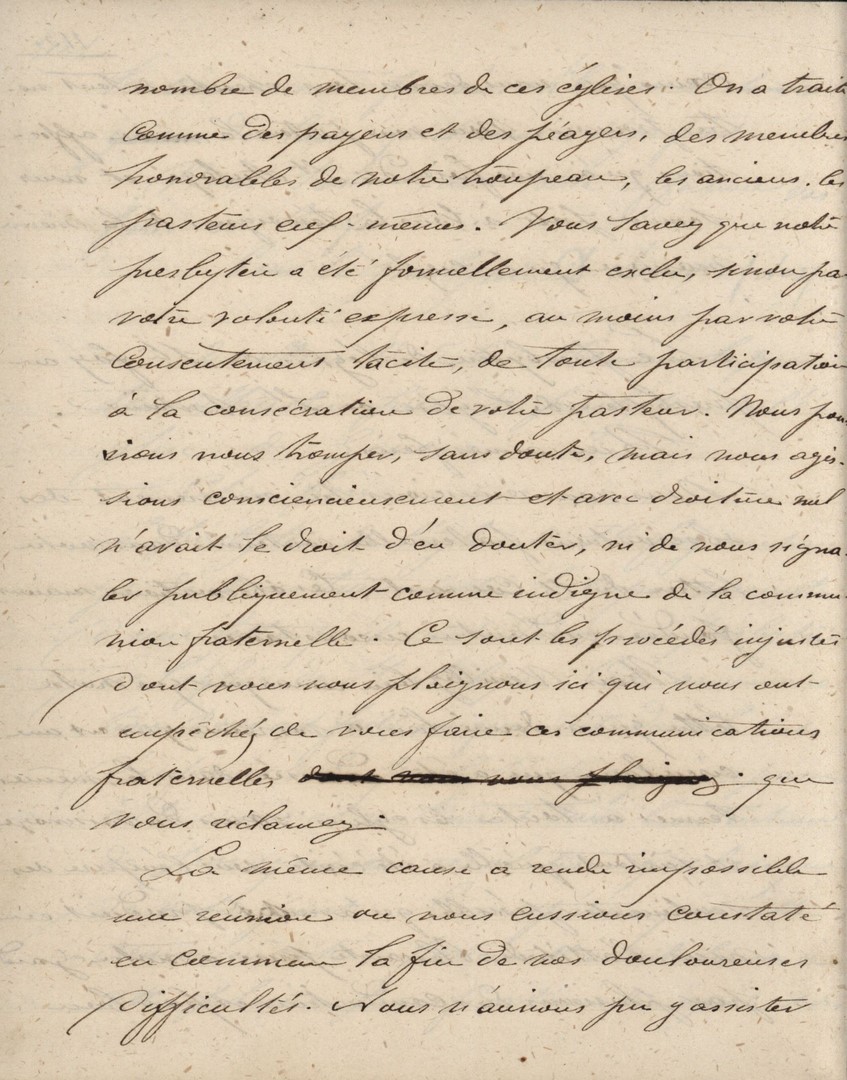 nombre de membres de ces églises. On a trait
comme des payens et des péagers, des membres
honorables de notre troupeau, les anciens. les
pasteurs eux-mêmes. Vous savez que notre
presbytère a été formellement exclu, sinon pa
votre volonté expresse, au moins par votre
consentement tacite, de toute participation
à la consécration de votre pasteur. Nous pou
rions nous tromper, sans doute, mais nous agis-
sions consciencieusement et avec droiture nul
n'avait le droit d'en douter, ni de nous signa-
ler publiquement comme indigne de la commu-
nion fraternelle. Ce sont les procédés injustes
dont nous nous plaignons ici qui nous ont
empêchéz de vous faire ces communications
fraternelles dont vous nous plaignez. que
vous réclamez.
La même cause a rendu impossible
une réunion ou nous eussions constaté
en commun la fin de nos douloureuses
difficultés. Nous n'aurions pu y assister